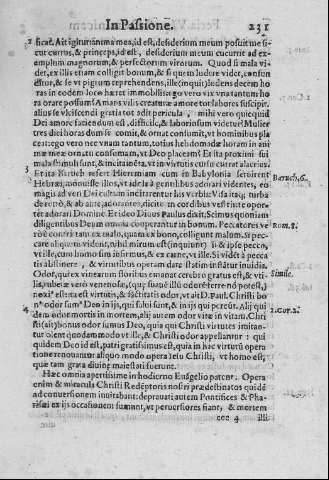 In Passione. 231
ficat. Ait igitur anima mea, id est, desiderium meum posuit me si-
cut currus, & princeps, id est, desiderium meum cucurrit ad ex-
emplum magnorum, & perfectorum virorum. Quod si mala vi-
det, ex illis etiam colligit bonum, & si quem ludere videt, confun
ditur, & se vt pigrum reprehendens, ille (inquit) ludens decem ho
ras in eodem loco hæret immobilis: et ego vero vix vna tantum ho
ra orare possum? Amans vilis creaturæ amore tot labores suscipit,
alius se vlciscendi gratia tot adit pericula, mihi vero quicquid
Dei amore faciendum est, difficile, & laboriosum videtur? Mulier
tres diei horas dum se comit, & ornat consumit, vt hominibus pla
ceat: ego vero nec vnam tantum, totius hebdomadæ horam in ani
mæ meæ ornatu consumam, vt Deo placeam? Et ita proximi
mala stimuli sunt, & incitamenta, vt in virtutis cursu currat alacrius.
Et ita Baruch refert Hieremiam cum in Babylonia seruirent
Hebræi, monuisse illos, vt idola à gentibus adorari videntes, eo
magis ad veri Dei cultum incitarentur his verbis: Visa itaq; turba
de retrò, & ab ante, adorantes, dicite in cordibus vestris: te opor-
tet adorari Domine. Et ideo Diuus Paulus dixit, Scimus quoniam
diligentibus Deum omnia cooperantur in bonum. Peccatores ve
rò è contrà tam ex malo, quam ex bono, colligunt malum. Si pec-
care aliquem vident, nihil mirum est (inquiunt) si & ipse pecco,
vt ille, cum homo sim infirmus, & ex carne, vt ille. Si videt à pecca
tis abstinere, & virtutibus operam dare statim instátur inuidia.
Odor, qui ex vinearum floribus emanat cerebro gratus est, & vti-
lis, rubetæ verò venenosæ, (quę suauē illū odorē ferre nō potest,)
noxi9 est: ita est virtutis, & sāctitatis odor, vt ait D. Paul. Christi bo
n9 odor sum9 Deo in ijs, qui salui fiunt, & in ijs, qui pereūt. Alij qui
dem odor mortis in mortem, alij autem odor vitæ in vitam. Chri
sti (ait) bonus odor sumus Deo, quia qui Christi virtutes imitan-
tur olent quodammodo vt ille, & Christi odor appellantur: qui
quidem Deo id est, patri gratissimus est, quia in hac virtutū opera
tione renouantur aliquo modo opera filij Christi, vt homo est,
quæ tam grata diuinę maiestati fuerunt.
Hæc omnia apertissime in hodierno Euāgelio patent: Opera
enim & miracula Christi Redēptoris nostri prædestinatos quidē
ad conuersionem inuitabant: deprauati autem Pontifices & Pha-
risæi ex ijs occasionem sumunt, vt peruersiores fiant, & mortem
eee 4 illi
3
4
Baruch. 6.
Rom. 8.
Simile.
2. Cor. 2.